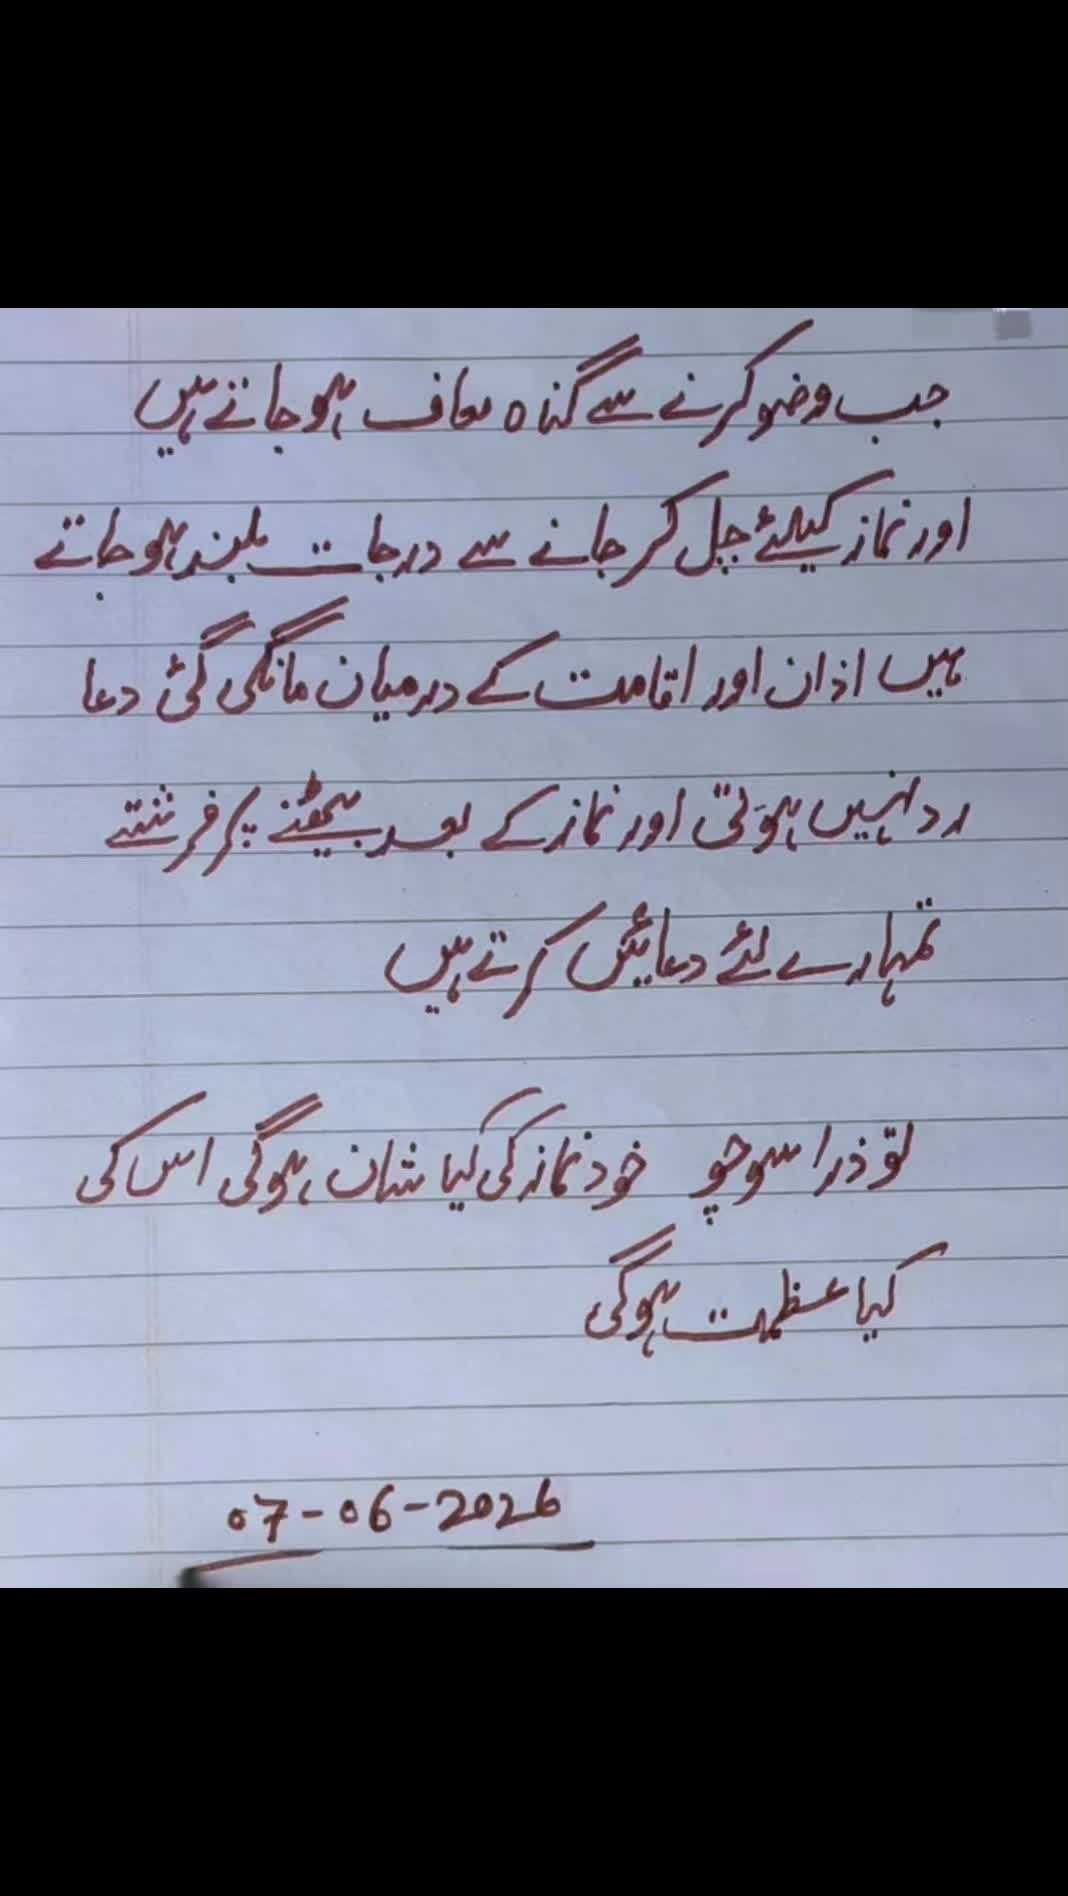 جب وضو کرنے سے گناہ معاف ہو جاتے ہیں
اور نماز کیلئے چل کر جانے سے درجات بلند ہو جاتے
ہیں اذان اور اقامت کے درمیان مانگی گئی دعا
رد نہیں ہوتی اور نماز کے بعد بیٹھنے پر فرشتے
تمہارے لئے دعائیں کرتے ہیں
تو ذرا سوچو خود نماز کی کیا شان ہوگی اس کی
کیا عظمت ہوگی
07-06-2026